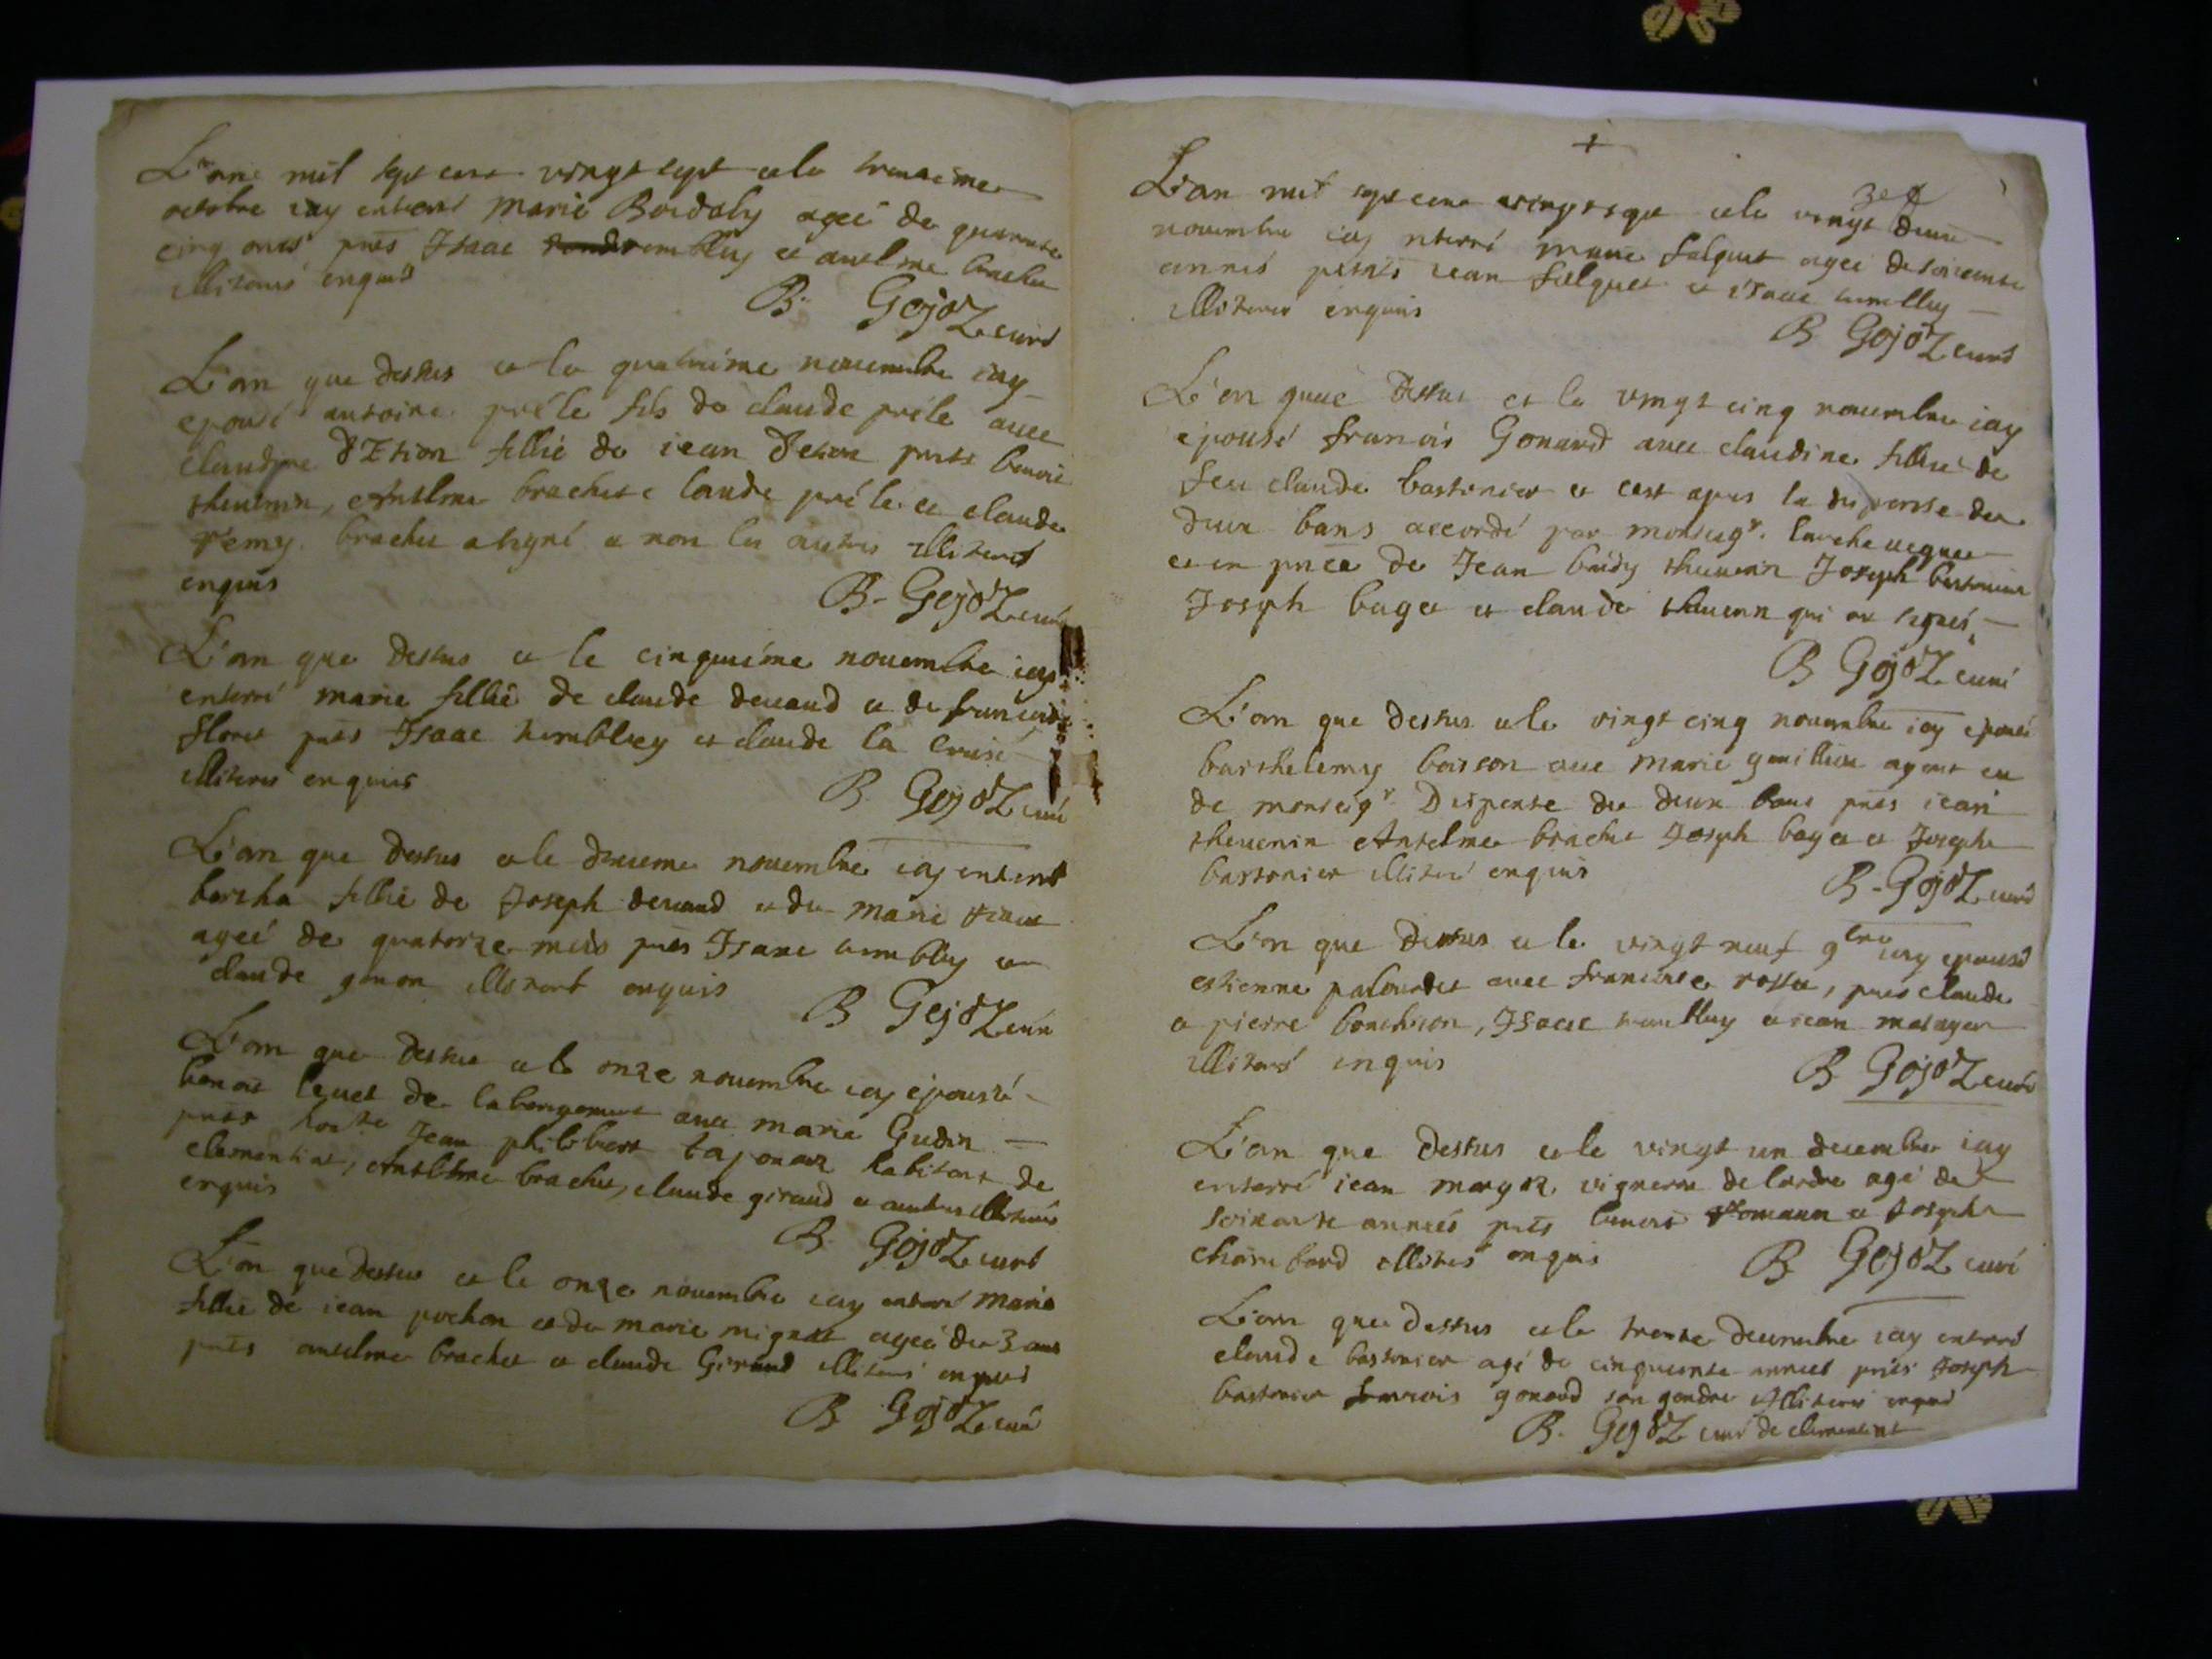 L'an mil sept cent vingt sept et le
octobre iay enterré marie Bordaly ageé de quarante
cinq années pnts Isaac trembley et anselme brachet
illiterés enquis
B. GojoZ curé
L'an que dessus et le quatriéme nouembre iay
epousé antoine préle fils de claude préle auec
claudine D'Etion fillie de iean Detion pnts benoit
theuenin, Anselme brachet claude préle et claude
remy. brachet a signé et non les autres illiterés
enquis
B. GojoZ curé
L'an que dessus et le cinquiéme nouembre iay
enterré marie fillie de claude deuaud et de francoise
floret pnts Isaac trembley et claude la Croise
illiterés enquis
B. GojoZ curé
L'an que dessus et le nouembre iay enterré
bartha fillie de Joseph deuaud et de marie
ageé de quatorze mois pnts Isaac trembley et
claude gonon enquis
B GojoZ curé
L'an que dessus et le onze nouembre iay epousé
benoit leuet de auec marie Gudin
pnts Jean philibert tajonar habitant de
clementiat, Anselme brachet, claude giraud et autres illiterés
enquis
B. GojoZ curé
L'an que dessus et le onze nouembre iay enterré marie
fillie de iean pochon et de marie mignat ageé de 3 ans
pnts anselme brachet et claude Giraud illiterés enquis
B GojoZ curé
+
3e
L'an mil sept cent vingt sept et le vingt deux
nouembre iay nterré marie falquet ageé de soixante
années pnts iean falquet et isaac trembley
illiterés enquis
B GojoZ curé
L'an que dessus et le vingt cinq nouembre iay
épousé francois Gonard auec claudine fillie de
feu claude bastonier et cest apres la dispense de
deux bans accordé par monseigr. larcheueque
et en pnce de Jean baidy theuenin Joseph bastonier
Joseph baget et claude theuenin qui on signés
B GojoZ curé
L'an que dessus et le vingt cinq nouembre iay epousé
barthelemy boisson auec marie ayant eu
de monseigr. Dispense de deux bans pnts iean
theuenin Anselme brachet Joseph baget et Joseph
bastonier illiterés enquis
B. GojoZ curé
L'an que dessus et le vingt neuf 9bre iay epousé
estienne palourdet auec francoise rosset, pnts claude
et pierre bonchison, Isaac trembley et iean
illiterés enquis
B GojoZ curé
L'an que dessus et le vingt un decembre iay
enterré iean vigneron agé de
soixante années pnts benoit et Joseph
chambard illiterés enquis
B GojoZ curé
L'an que dessus et le trente decembre iay enterré
claude bastonier agé de cinquante années pnts Joseph
bastonier francois gonard son gendre illiterés enquis
B. GojoZ curé de clementiat